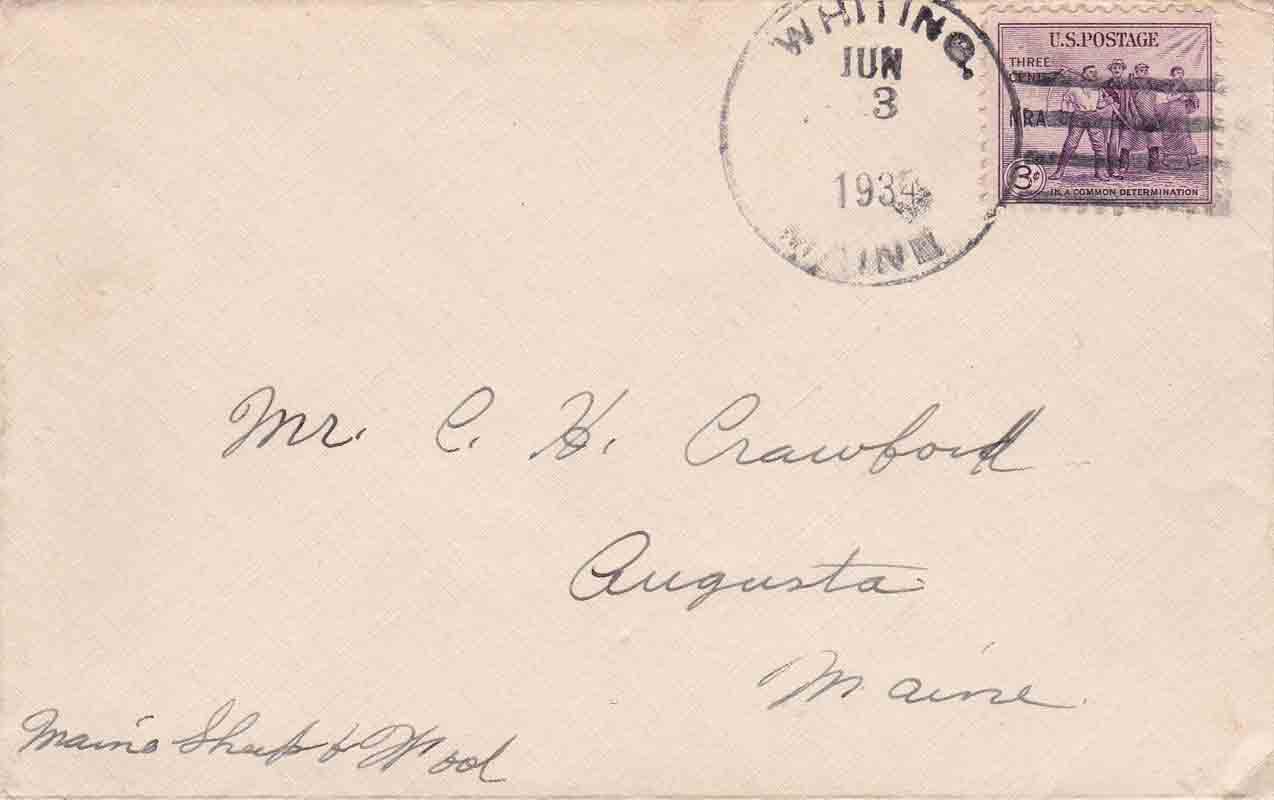 WHITING
JUN
3
1934
MAINE
U.S.POSTAGE
THREE
CENTS
NRA
3¢
IN A COMMON DETERMINATION
Mr. C. H. Crawford
Augusta
Maine
Maine Sheep & Wool